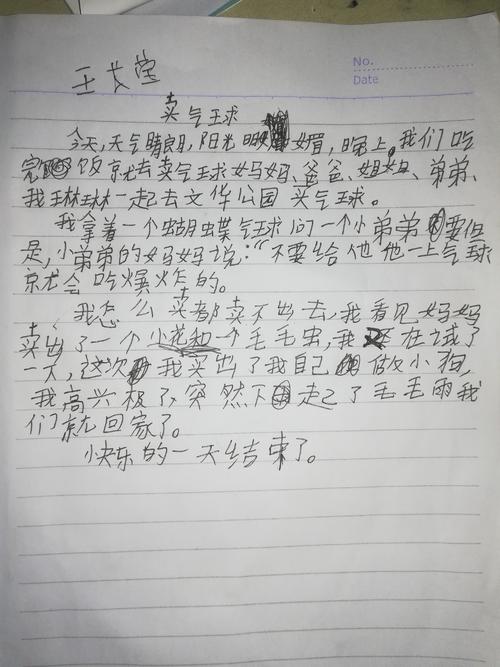 No.
Date
王长莹
卖气球
今天,天气晴朗,阳光明媚,晚上,我们吃
完饭就去卖气球妈妈、爸爸、姐姐、弟弟、
我琳琳一起去文华公园卖气球。
我拿着一个蝴蝶气球问一个小弟弟要但
是,小弟弟的妈妈说:“不要给他他一上气球
就会吃爆炸的。
我怎么卖都卖不出去,我看见妈妈
卖出了一个小花和一个毛毛虫,我在试了
一次,这次我买出了我自己做小狗,
我高兴极了,突然下起了毛毛雨我
们就回家了。
快乐的一天结束了。